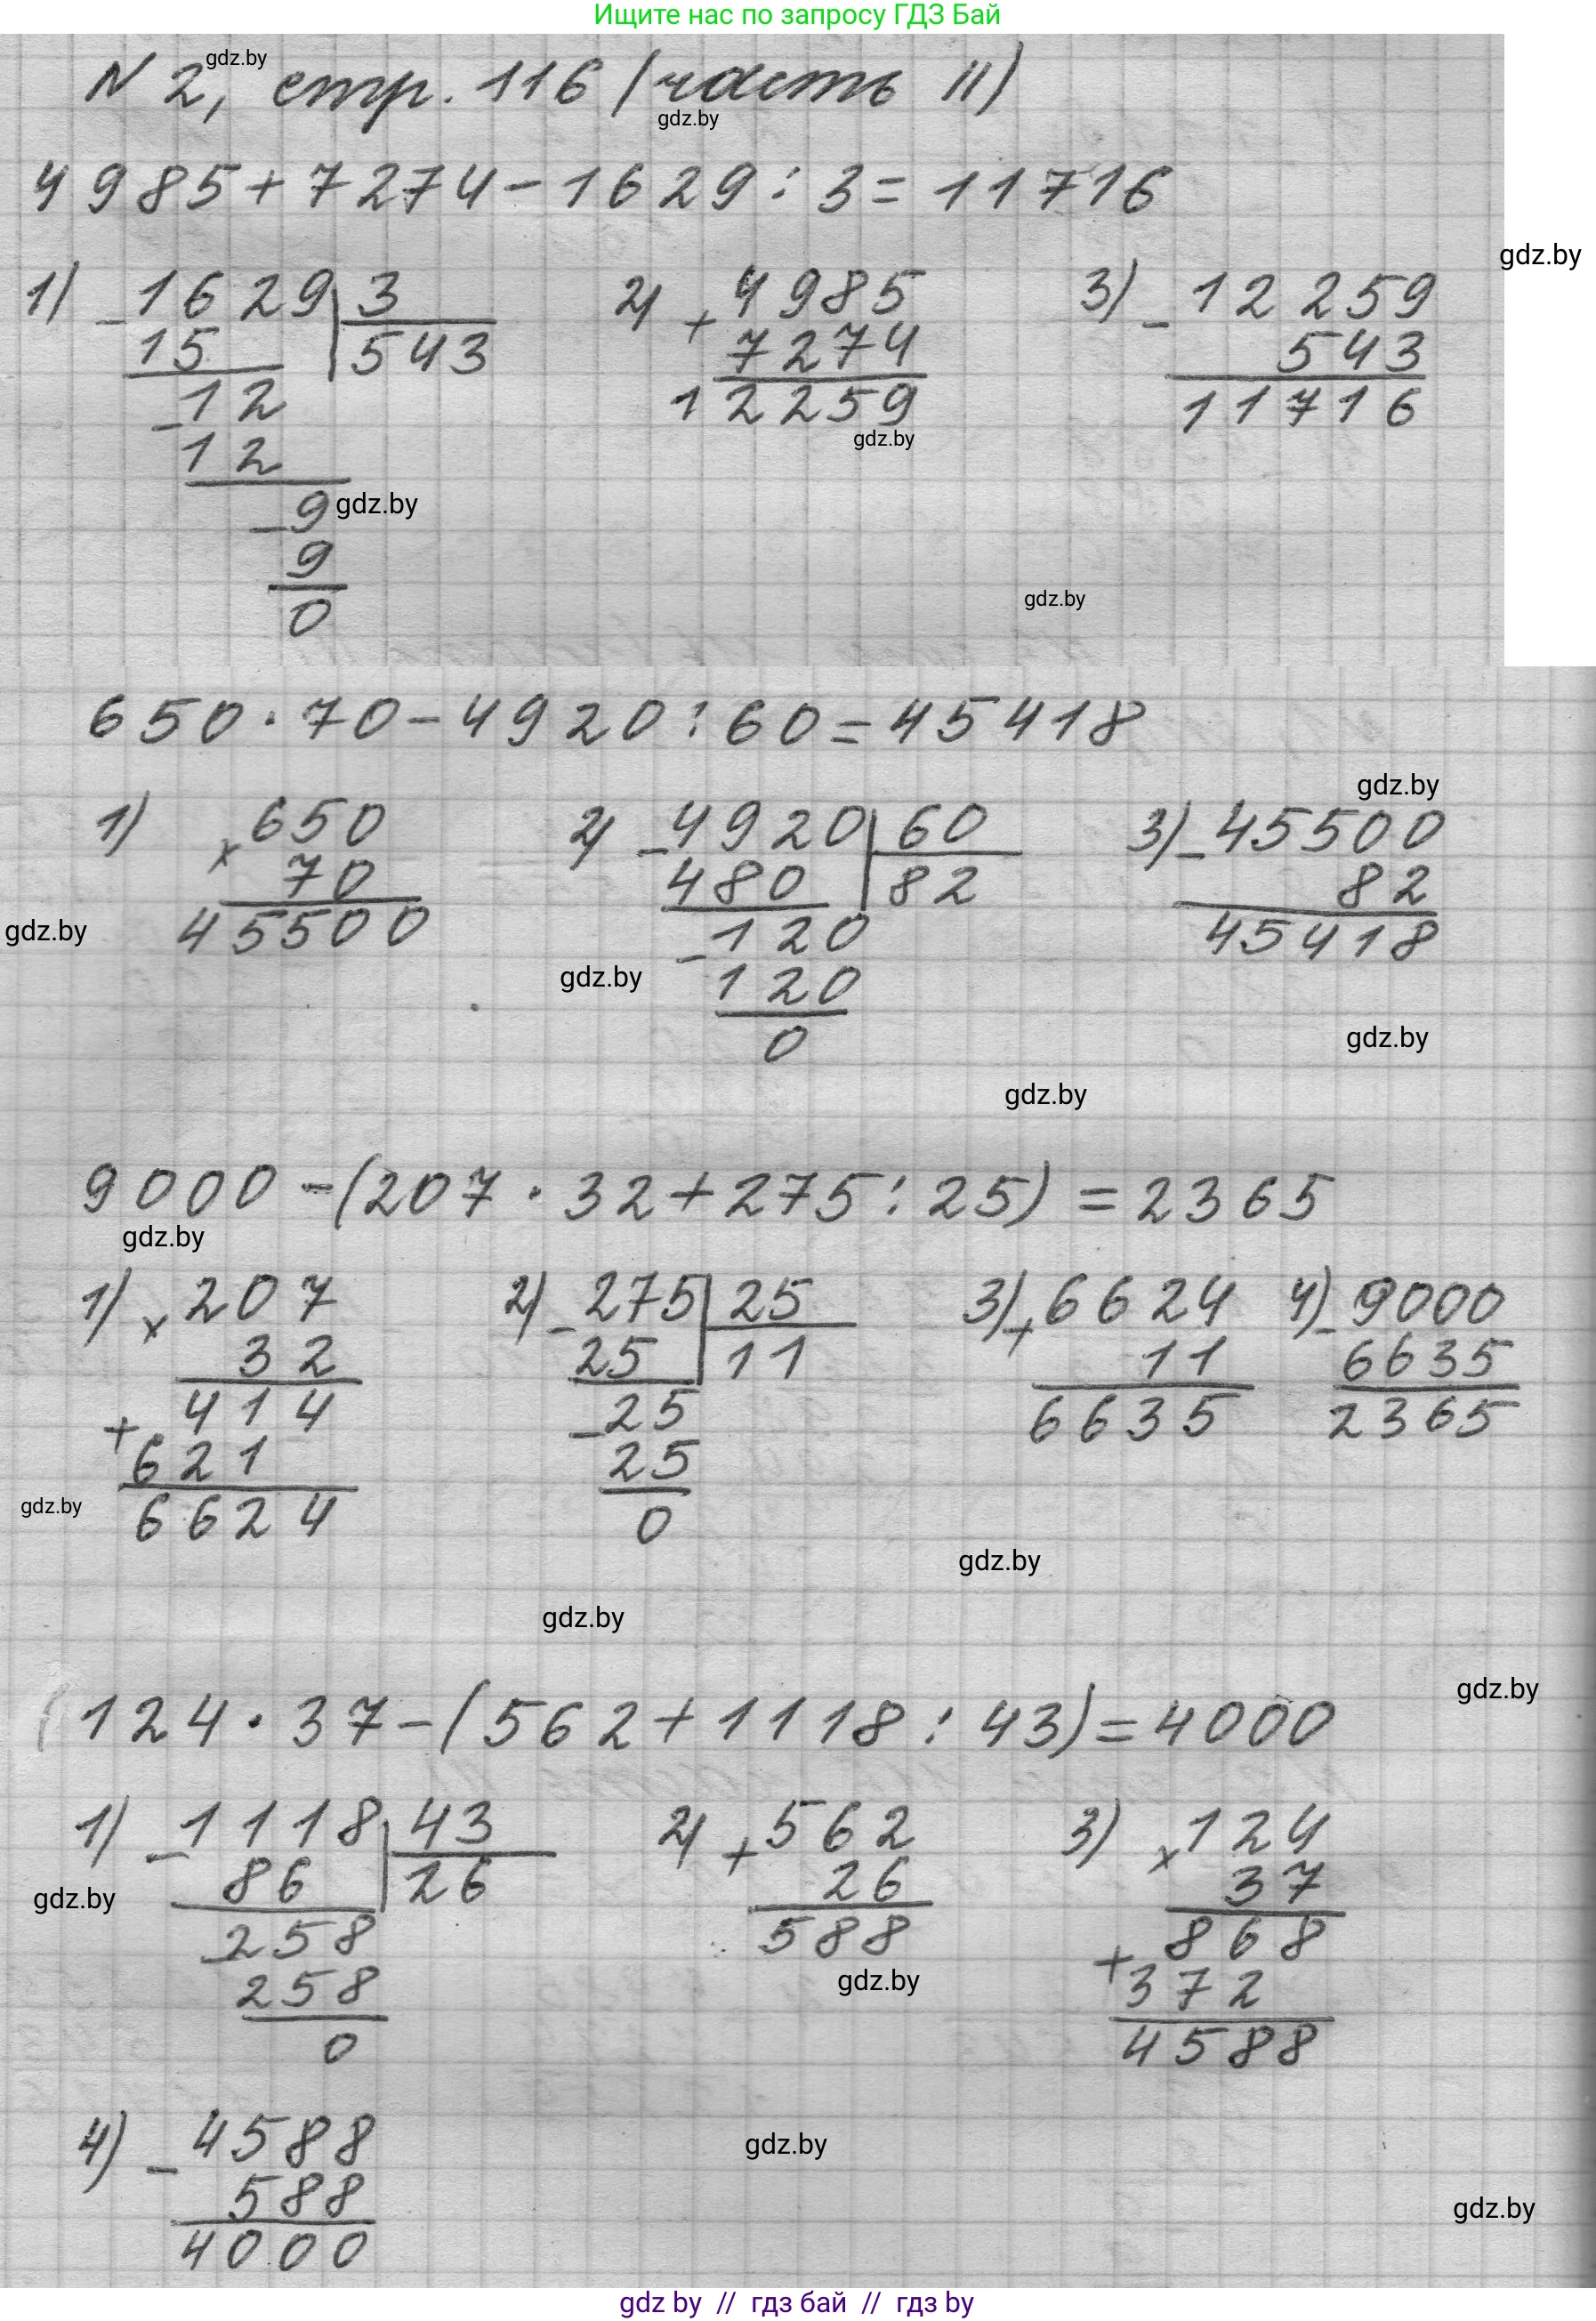 Ищите нас по запросу ГДЗ Бай
N 2, стр. 116 (часть II)
gdz.by
gdz.by
4985+7274-1629:3=11716
gdz.by
1) -1629 3 2) +4985 3) -12259
15 543 7274 543
-12 12259 11716
gdz.by
12
-9 gdz.by
9
gdz.by
0
650·70-4920:60=45418
gdz.by
1) ×650 2) -4920 60 3) -45500
70 480 82 82
gdz.by 45500 -120 45418
gdz.by 120
0 gdz.by
gdz.by
9000-(207·32+275:25)=2365
gdz.by
1) ×207 2) -275 25 3) +6624 4) -9000
32 25 11 11 6635
+414 -25 6635 2365
621 25
gdz.by 6624 0
gdz.by
gdz.by
gdz.by
124·37-(562+1118:43)=4000
1) -1118 43 2) +562 3) ×124
gdz.by 86 26 26 37
-258 588 +868
258 gdz.by 372
0 4588
4) -4588 gdz.by
588 gdz.by
4000
gdz by // гдз бай // гдз by